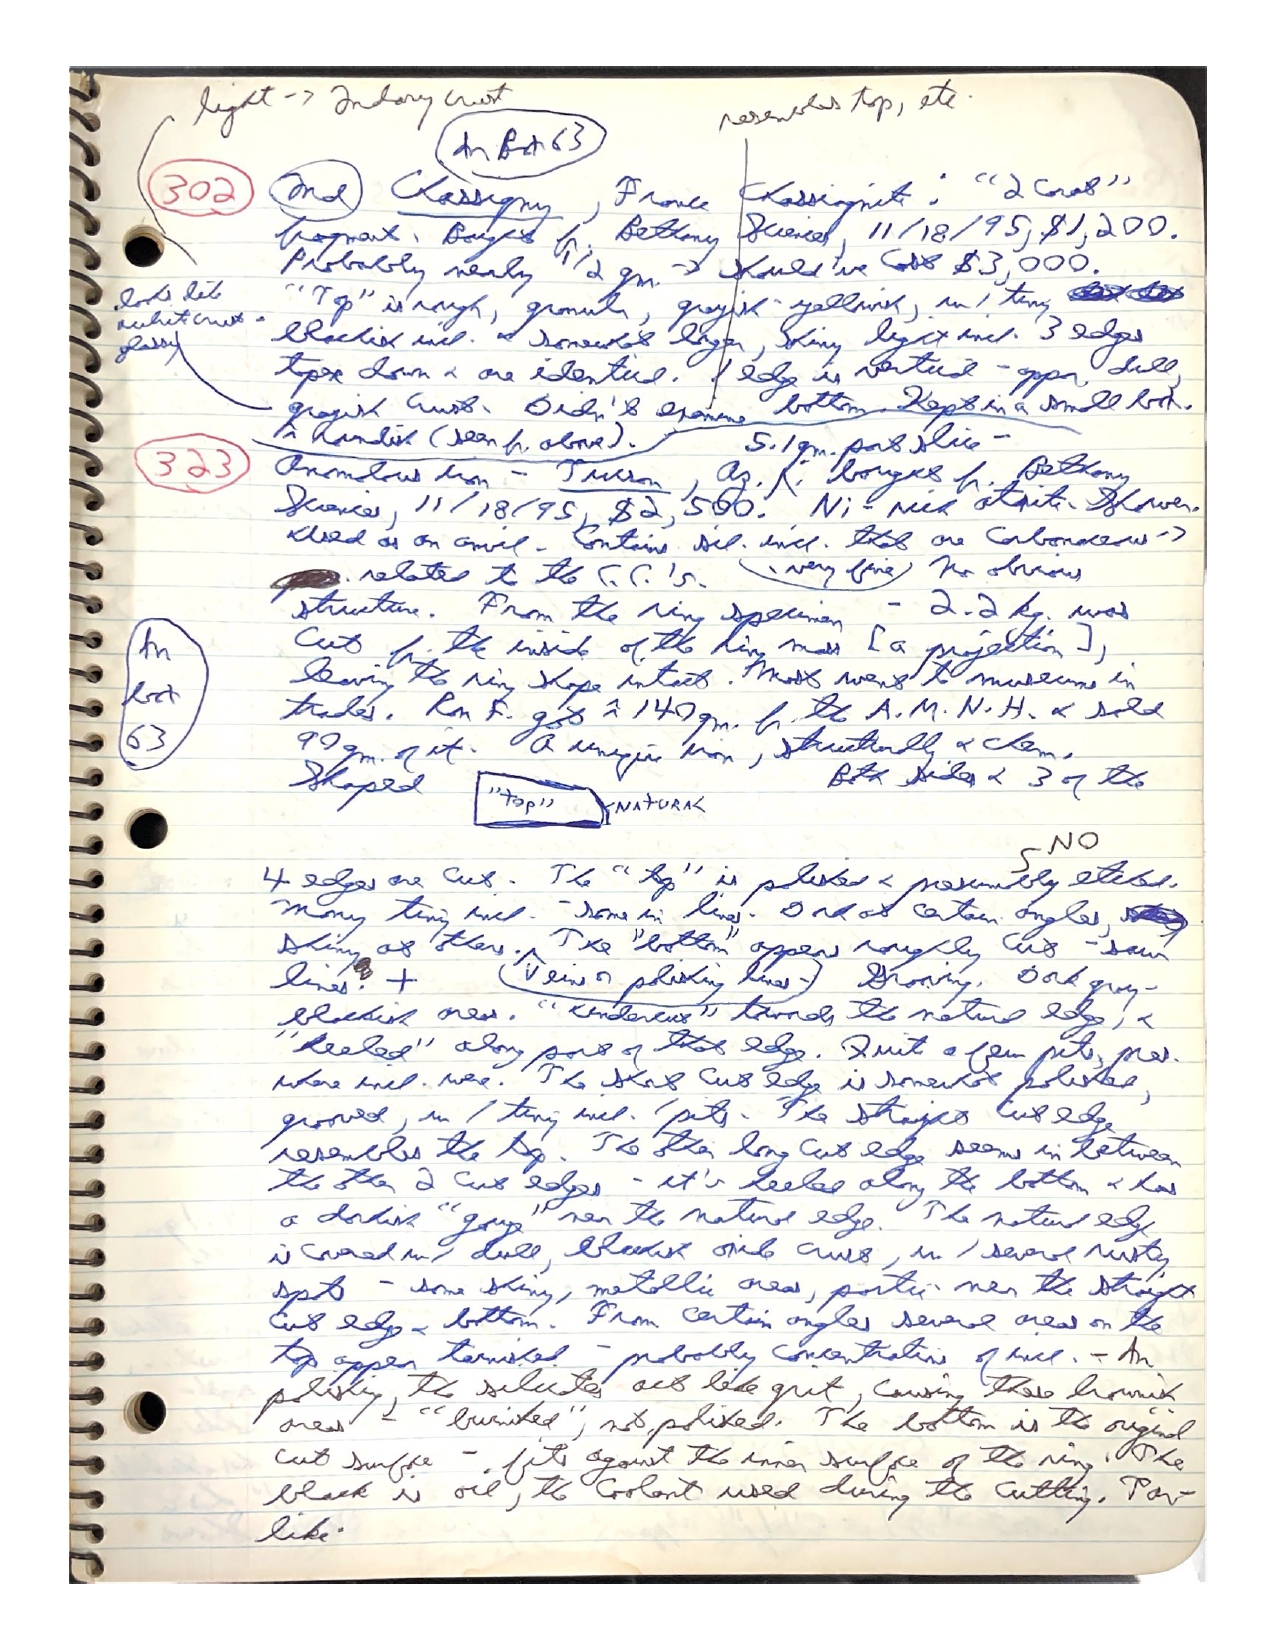 light -> 2ndary crust
resembles top, etc.
In Box 63
302 2nd Chassigny, France Chassignite. "2 Carat"
fragment. Bought fr. Bethany Sciences, 11/18/95, $1,200.
Probably nearly 1/2 gm. -> should've cost $3,000.
"Top" is rough, granular, grayish-yellowish, w/ tiny
looks like
crust -
glassy
blackish incl. & somewhat larger, shiny light incl. 3 edges
taper down & are identical. 1 edge is vertical - appar. dull,
grayish crust. Didn't examine bottom. Kept in a small box.
(seen fr. above).
5.1 gm. part slice -
323 Anomalous iron - Tucson, Az. bought fr. Bethany
Sciences, 11/18/95, $2,500. Ni-rich ataxite. Shower.
Used as an anvil. Contains sil. incl. that are carbonaceous ->
related to the C.C.'s. (very fine) No obvious
structure. From the ring specimen - 2.2 kg. was
cut fr. the inside of the ring mass [a projection],
leaving the ring shape intact. Most went to museums in
trades. Ron F. got ≈ 140 gm. fr. the A.M.N.H. & sold
99 gm. of it. A unique iron, structurally & chem.
In
box
63
Shaped "top" NATURAL Both sides & 3 of the
NO
4 edges are cut. The "top" is polished & presumably etched.
Many tiny incl. - some in lines. Dark at certain angles,
shiny at others. The "bottom" appears roughly cut - saw
lines. + (Vein or polishing lines -) Grooving. Dark gray-
blackish areas. "Undercut" towards the natural edge, &
"heeled" along part of that edge. Quite a few pits, pres.
where incl. were. The short cut edge is somewhat polished,
grooved, w/ tiny incl./pits. The straight cut edge
resembles the top. The other long cut edge seems in between
the other 2 cut edges - it's heeled along the bottom & has
a darkish "gouge" near the natural edge. The natural edge
is covered w/ dull, blackish oxide crust, w/ several rusty
spots - some shiny, metallic areas, partic. near the straight
cut edge & bottom. From certain angles several areas on the
top appear tarnished - probably concentrations of incl. - In
polishing, the silicates act like grit, causing these brownish
areas - "burnished", not polished. The bottom is the original
cut surface - fits against the inner surface of the ring. The
black is oil, the coolant used during the cutting. Tar-
like.